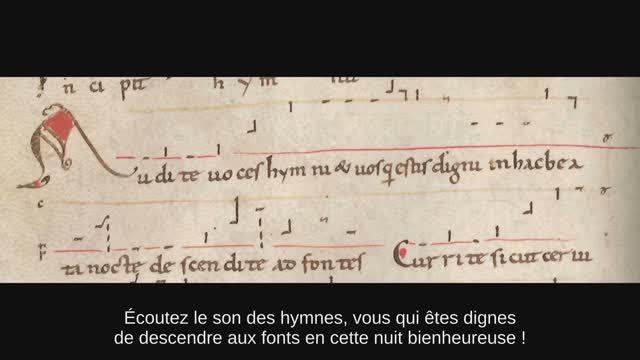 n ci pit h y m
Au di te uo ces hym ni & uos q estis digni in hac be a
c
F
ta nocte de scen di te ad fontes Cur ri te si cut cer ui
Écoutez le son des hymnes, vous qui êtes dignes
de descendre aux fonts en cette nuit bienheureuse !